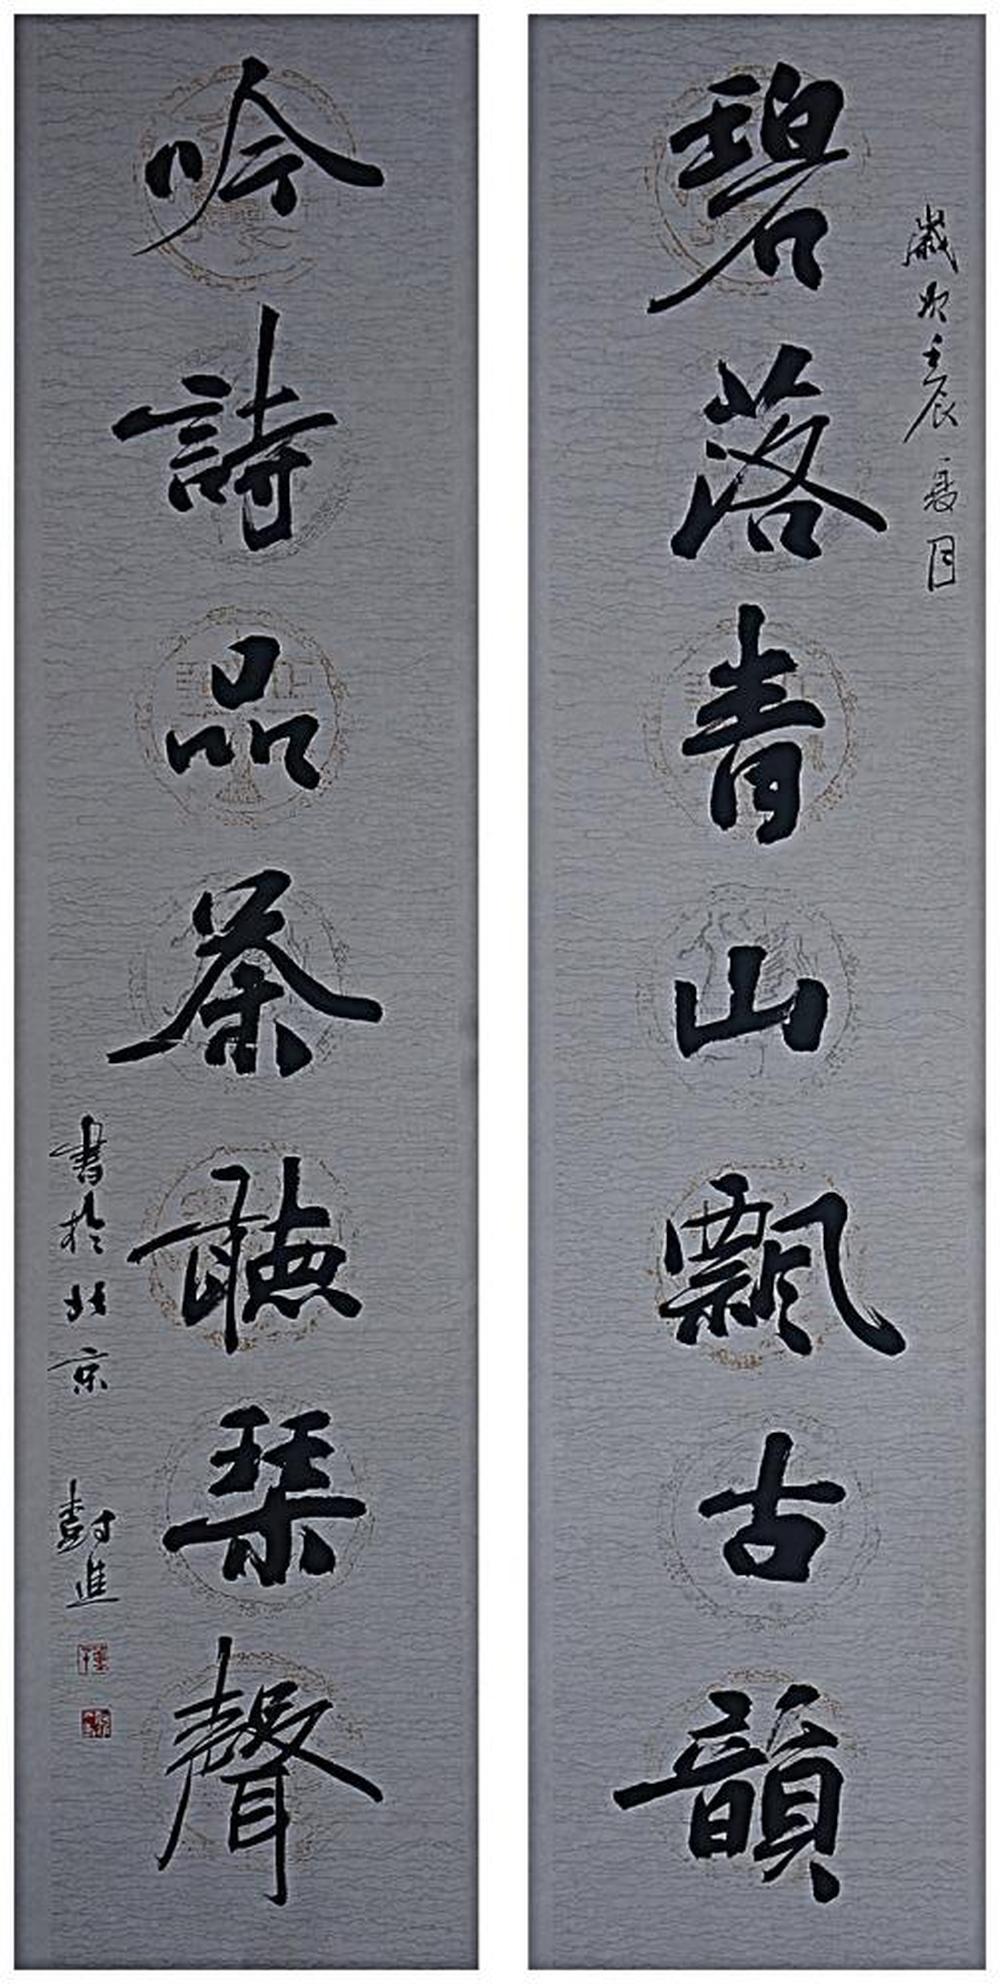 歲次壬辰夏月
碧落青山飄古韻
吟詩品茶聽琴聲
書於北京
封進